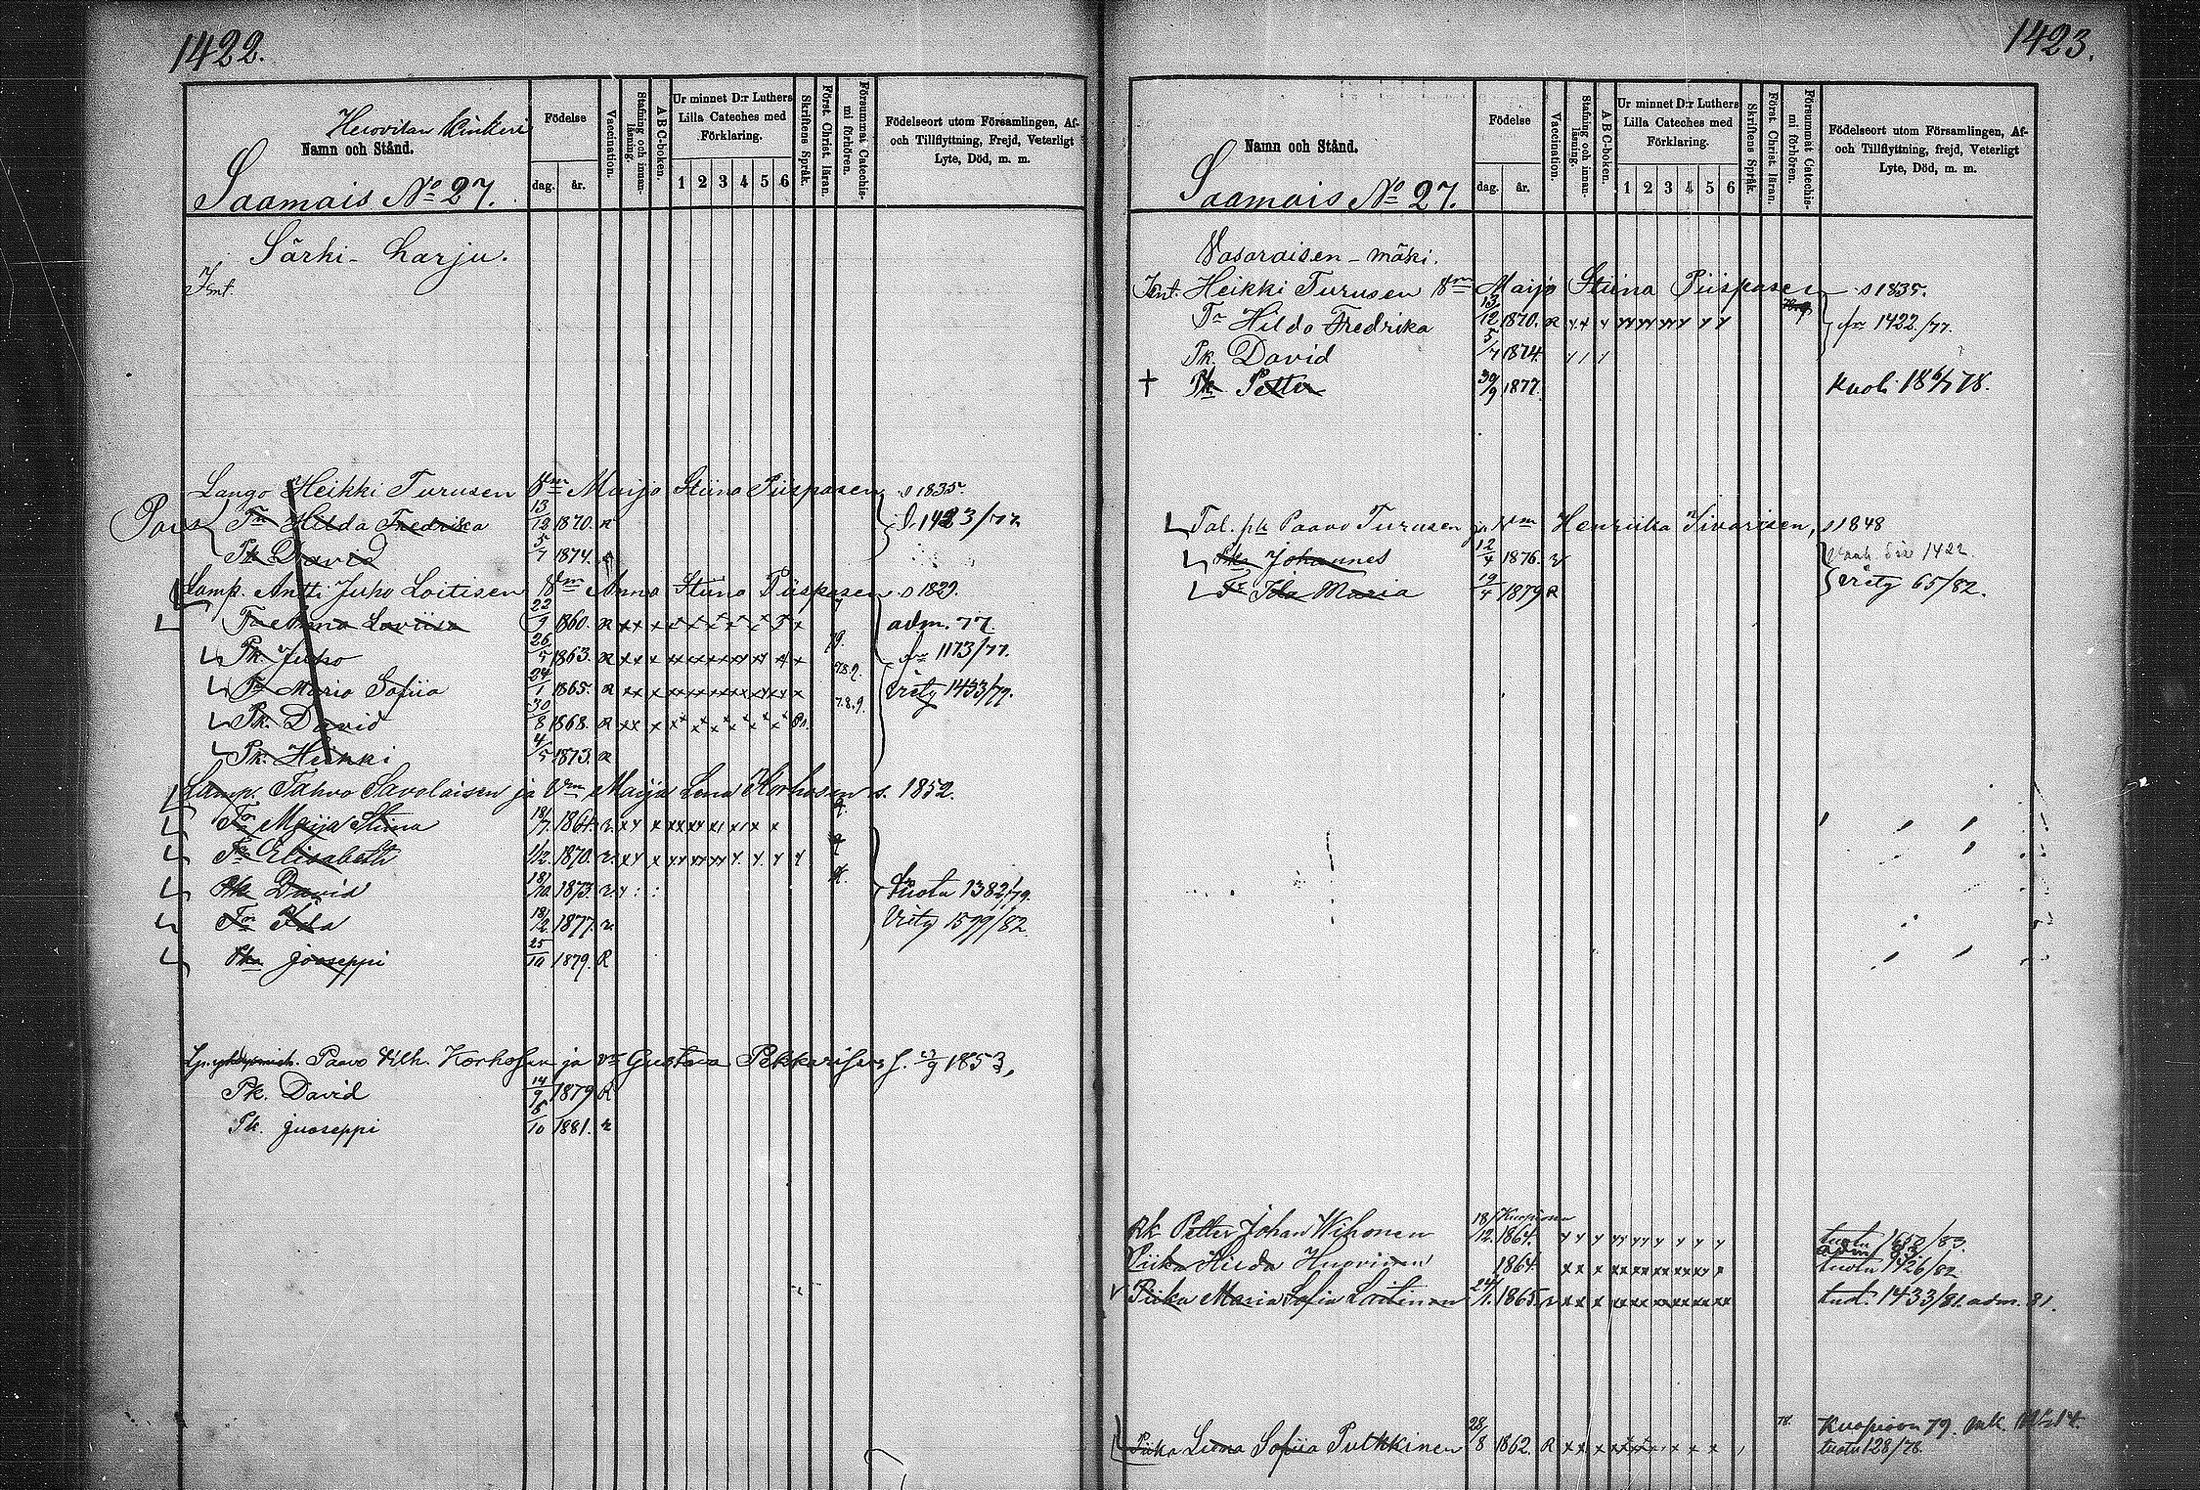 1422.
Namn och Stånd.
Saamais No 27.
Födelse
dag. år.
Vaccination.
Stafning och innanläsning.
ABC-boken.
Ur minnet D:r Luthers
Lilla Cateches med
Förklaring.
1 2 3 4 5 6
Skriftens Språk.
Först. Christ. läran.
Försummat Catechismi förhören.
Födelseort utom Församlingen, Af-
och Tillflyttning, Frejd, Veterligt
Lyte, Död, m. m.
Särki-harju.
Heikki Turusen Vm Maija Stiina Piispasen s 1835.
Tr Hilda Fredrika 13/12 1870. R 1423/77
Pk David 5/7 1874.
Lamp. Antti Juho Loitisen Vm Anna Stiina Piispasen s 1829.
Anna Loviisa 22/9 1860. R adm. 77.
Pk. Juho 26/5 1863. R 1173/77.
Tr Maria Sofiia 24/1 1865. R 78.9. 1433/79.
Pk. David 30/8 1868. R 7.8.9.
Pk. Heikki 4/5 1873. R
Lamp. Tahvo Savolaisen ja Vm Maija Lena Korhosen s. 1852.
Tr Maija Stiina 18/7 1864.
Tr Elisabeth 1/12. 1870.
Pk David 18/10 1873. tuotu 1382/79.
Tr Ida 18/2 1877. 1599/82
Juoseppi 25/10 1879. R
Paavo Vilh. Korhosen ja Vm Gustava Pekkarisen s. 1853,
Pk. David 14/9 1879 R
Pk. Juoseppi 8/10 1881.
1423.
Namn och Stånd.
Saamais No 27.
Födelse
dag. år.
Vaccination.
Stafning och innanläsning.
ABC-boken.
Ur minnet D:r Luthers
Lilla Cateches med
Förklaring.
1 2 3 4 5 6
Skriftens Språk.
Först. Christ. läran.
Försummat Catechismi förhören.
Födelseort utom Församlingen, Af-
och Tillflyttning, frejd, Veterligt
Lyte, Död, m. m.
Vasaraisen-mäki.
Heikki Turusen Vm Maija Stiina Piispasen s 1835.
Tr Hilda Fredrika 13/12 1870. R 1422/77.
Pk. David 5/7 1874.
† Pk Petter 30/9 1877. kuoli 18 6/7 78.
Tal. pk Paavo Turusen ja Vm Henriika Sivarisen, s 1848
Johannes 12/4 1876. 1422
Tr Ida Maria 19/4 1879 R 65/82.
Rk Petter Johan Wihonen 18/12. 1864. Kuopiossa tuotu 1652/83.
adm. 83
Piika Hilda Huovinen 1864. tuotu 1426/82
Piika Maria Sofia Loitinen 24/1. 1865. tuot. 1433/81. adm. 81.
Kuopioon 79.
Piika Liena Sofiia Pulkkinen 28/8 1862. R 78. tuotu 128/78.